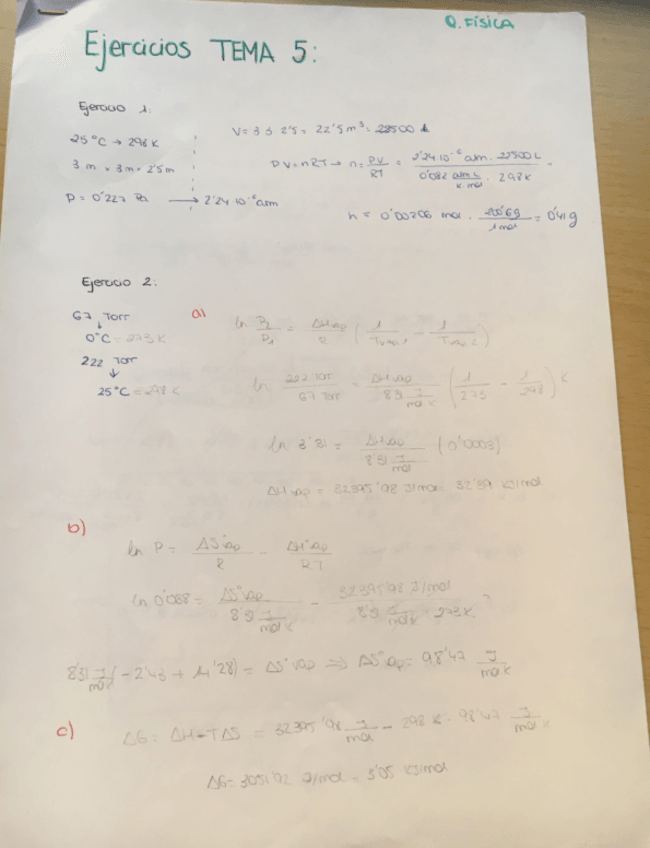 Q. FÍSICA
Ejercicios TEMA 5:
Ejercicio 1:
25°C → 298 K
3 m × 3m × 2'5m
P = 0'227 Pa → 2'24·10⁻⁶ atm
V = 3·3·2'5 = 22'5 m³ = 22500 L
PV = nRT → n = PV/RT = 2'24·10⁻⁶ atm · 22500 L / 0'082 atm·L/K·mol · 298K =
n = 0'00206 mol · 200'6g/1mol = 0'41 g
Ejercicio 2:
67 Torr
↓
0°C = 273 K
222 Torr
↓
25°C = 298 K
a) ln P₂/P₁ = ΔHvap/R (1/Tvap1 - 1/Tvap2)
ln 222 Torr/67 Torr = ΔHvap/8'31 J/mol K (1/273 - 1/298) K
ln 3'31 = ΔHvap/8'31 J/mol (0'0003)
ΔHvap = 32395'98 J/mol = 32'39 KJ/mol
b) ln P = ΔS°vap/R - ΔH°vap/RT
ln 0'088 = ΔS°vap/8'31 J/mol K - 32395'98 J/mol / 8'31 J/mol K · 273K
8'31 J/mol K (-2'43 + 14'28) = ΔS°vap ⇒ ΔS°vap = 98'47 J/mol K
c) ΔG = ΔH - TΔS = 32395'98 J/mol - 298 K · 98'47 J/mol K
ΔG = 3051'92 J/mol = 3'05 KJ/mol